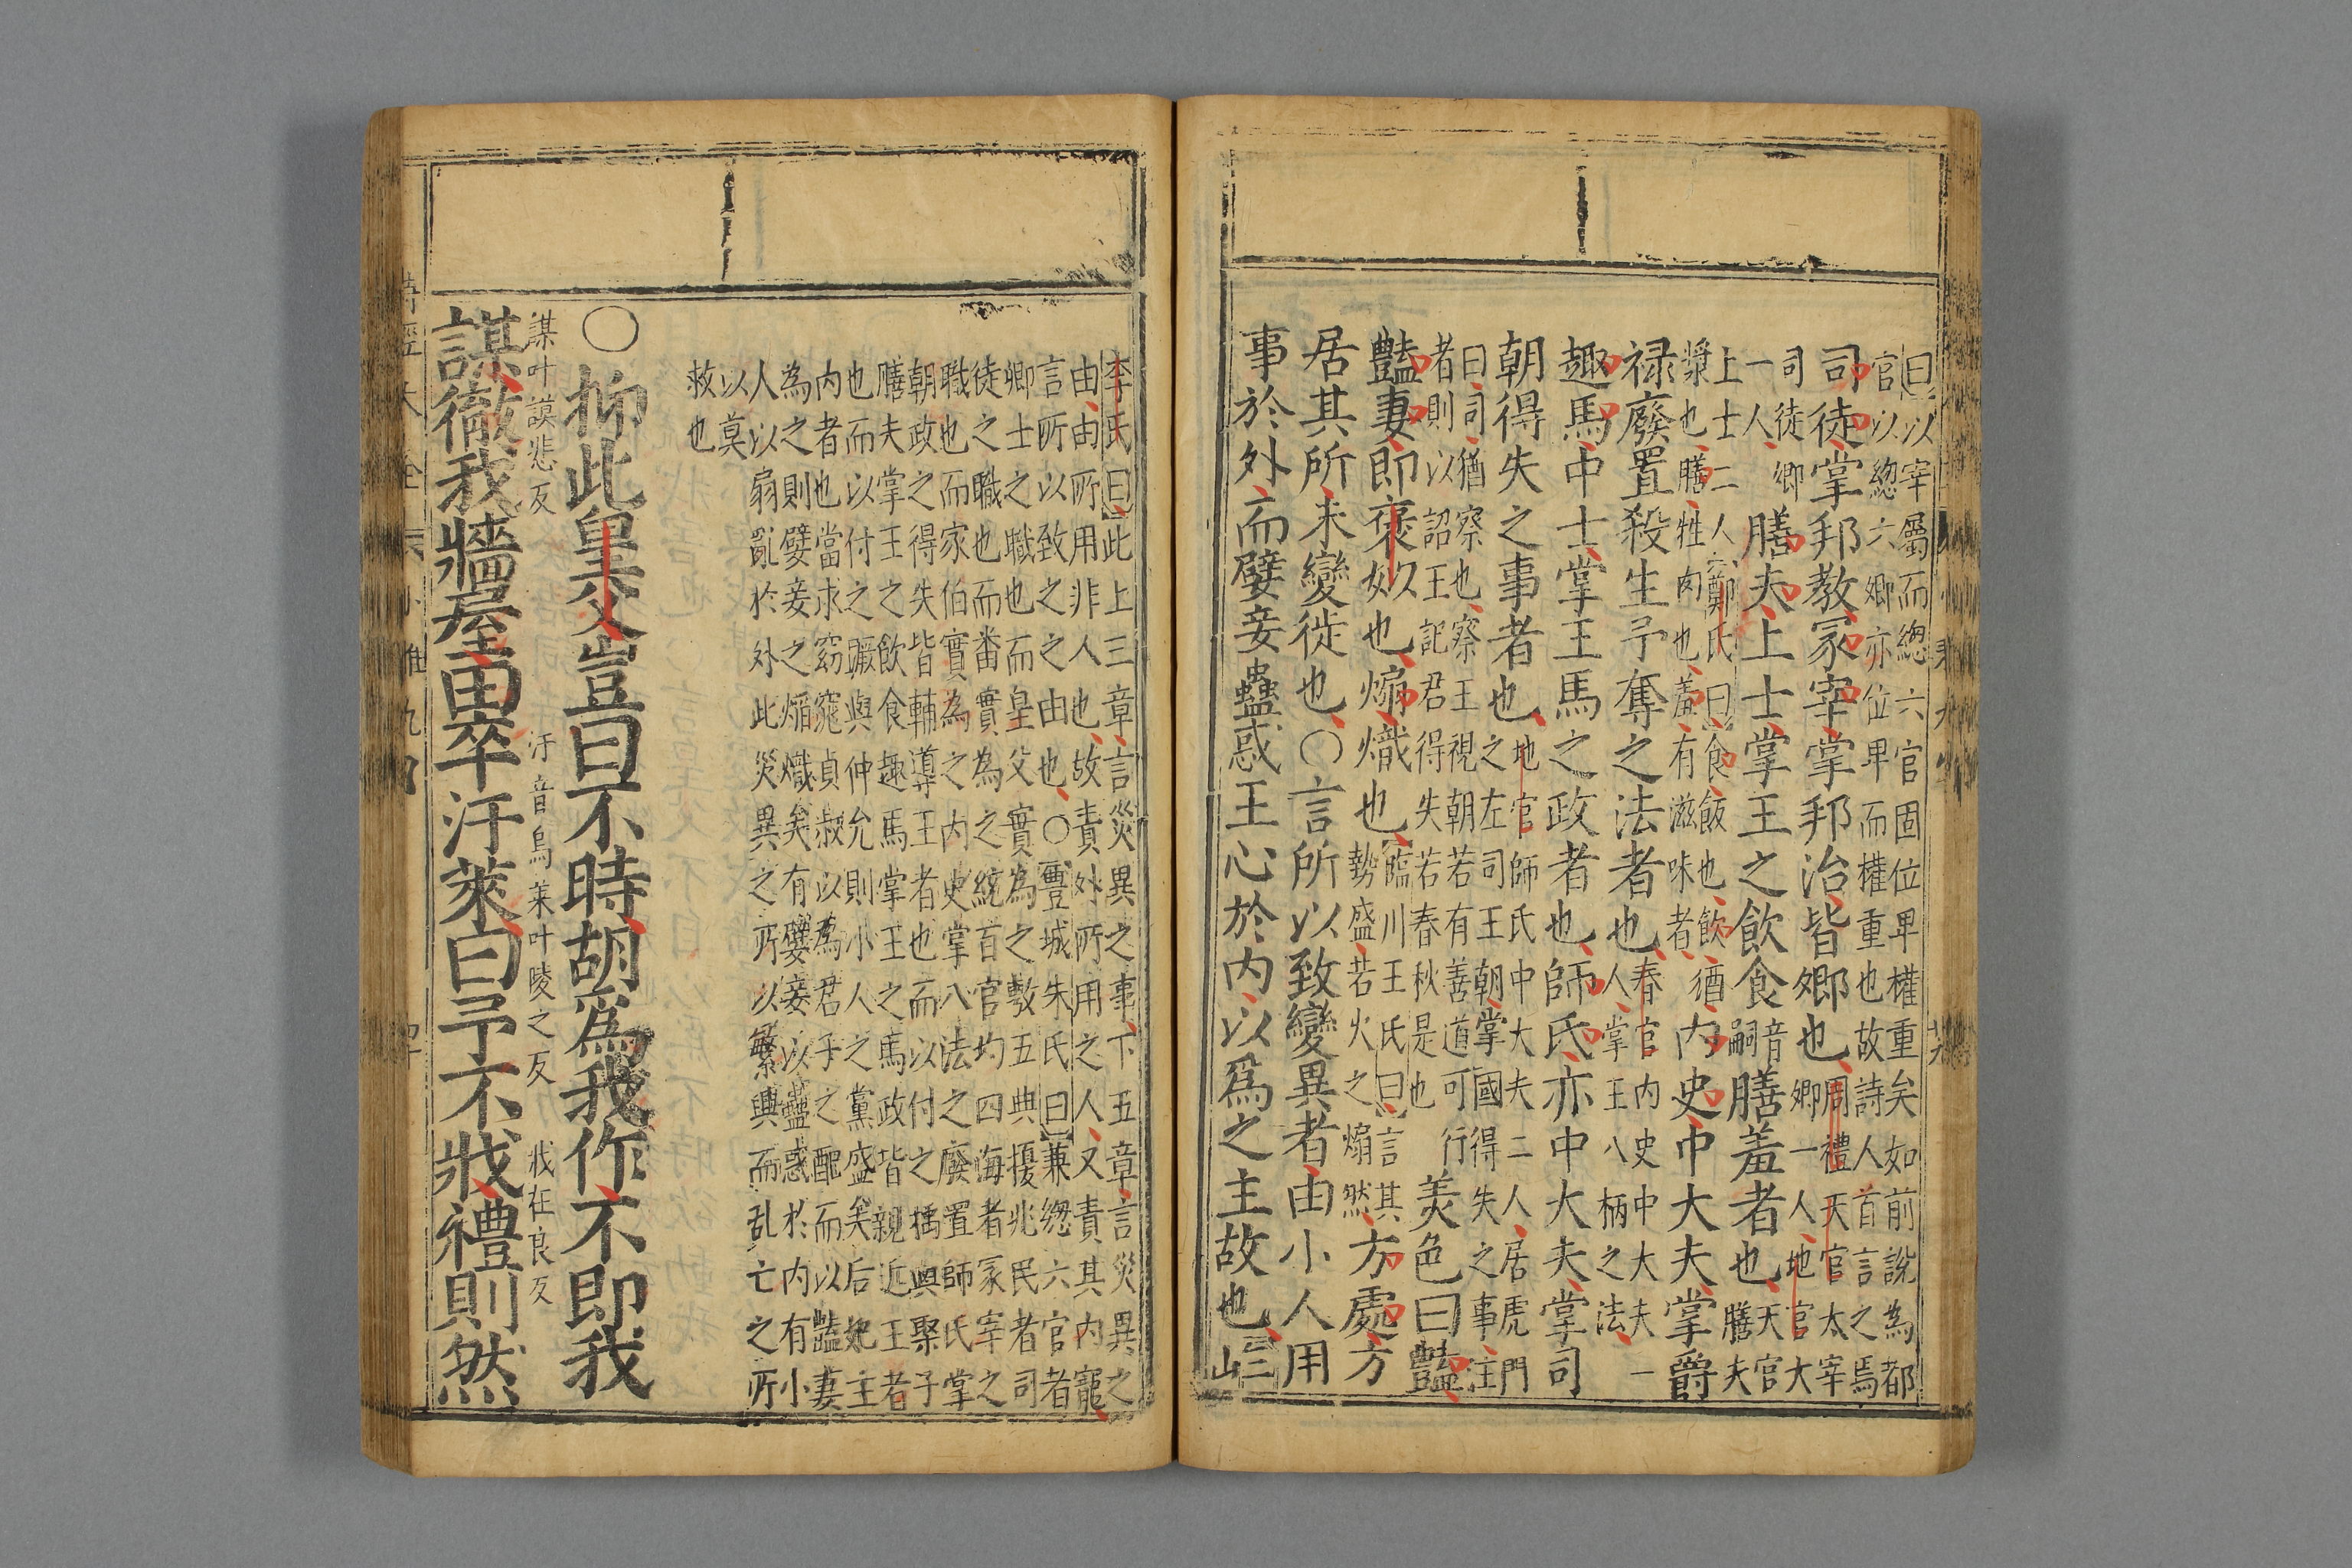 曰以宰屬而緫六官固位卑權重矣如前說為都
官以緫六卿亦位卑而權重也故詩人首言之焉
司徒掌邦教冢宰掌邦治皆卿也周禮天官太宰
卿一人地官大
司徒卿
一人膳夫上士掌王之飲食音嗣膳羞者也天官
膳夫
上士二人○鄭氏曰食飯也飲酒
漿也膳牲肉也羞有滋味者内史中大夫掌爵
禄廢置殺生予奪之法者也春官内史中大夫一
人掌王八柄之法
趣馬中士掌王馬之政者也師氏亦中大夫掌司
朝得失之事者也地官師氏中大夫二人居虎門
之左司王朝掌國得失之事註
曰司猶察也察王視朝若有善道可行
者則以詔王記君得失若春秋是也美色曰豔
豔妻即褒姒也煽熾也臨川王氏曰言其
勢盛若火之煽然方處方
居其所未變徙也○言所以致變異者由小人用
事於外而嬖妾蠱惑王心於内以爲之主故也三山
李氏曰此上三章言災異之事下五章言災異之
由由所用非人也故責外所用之人又責其内寵
言所以致之之由也○豐城朱氏曰兼緫六官者
卿士之職也而皇父實為之敷五典擾兆民者司
徒之職也而番實為之統百官均四海者冢宰之
職也而家伯實為之内史掌八法之廢置師氏掌
朝政之得失皆輔導王者也而以付之楀與聚子
膳夫掌王之飲食趣馬掌王之馬政皆親近王者
也而以付之蹶與仲允則小人之黨盛矣后妃主
内者也當求窈窕貞淑以為君子之配而以豔妻
為之則嬖妾之煽熾矣有嬖妾以蠱惑於内有小
人以扇亂於外此災異之所以繁興而乱亡之所
以莫
救也
○抑此皇父豈曰不時胡爲我作不即我
謀叶謨悲反 汙音烏萊叶陵之反 戕在良反
謀徹我牆屋田卒汙萊曰予不戕禮則然